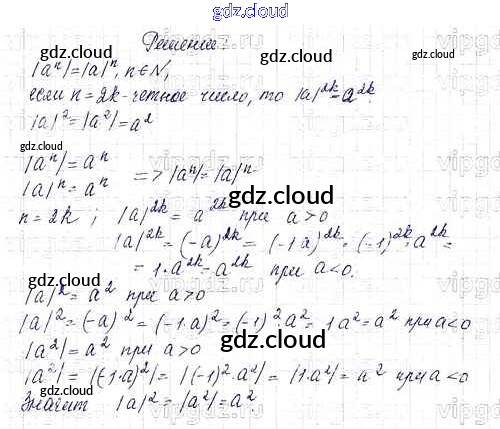 gdz.cloud
Решение:
gdz.cloud gdz.cloud
|aⁿ|=|a|ⁿ, n∈N,
если n=2k-четное число, то |a|²ᵏ=a²ᵏ
|a|²=|a²|=a²
gdz.cloud
|aⁿ|=aⁿ
|a|ⁿ=aⁿ => |aⁿ|=|a|ⁿ
gdz.cloud
n=2k; |a|²ᵏ=a²ᵏ при a>0
|a|²ᵏ=(-a)²ᵏ=(-1·a)²ᵏ=(-1)²ᵏ·a²ᵏ=
=1·a²ᵏ=a²ᵏ при a<0.
gdz.cloud gdz.cloud
|a|²=a² при a>0
|a|²=(-a)²=(-1·a)²=(-1)²·a²=1a²=a² при a<0
gdz.cloud
|a²|=a² при a>0
|a²|=|(-1·a)²|=|(-1)²·a²|=|1·a²|=a² при a<0
gdz.cloud gdz.cloud
Значит |a|²=|a²|=a²